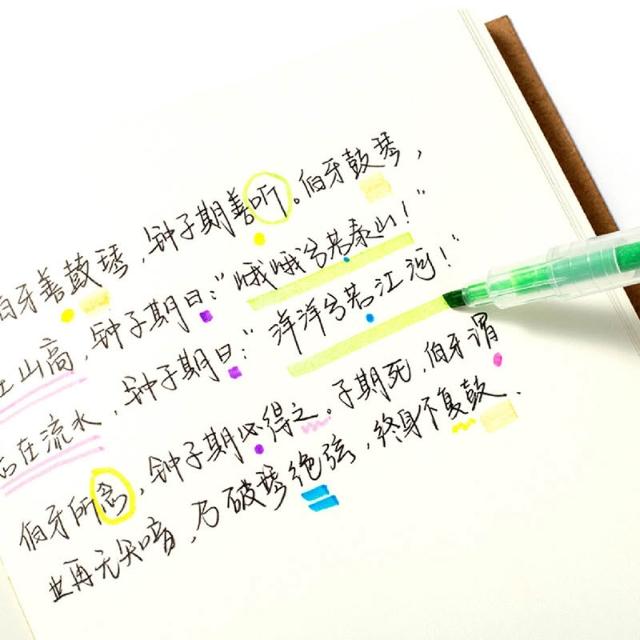 伯牙善鼓琴,钟子期善听。伯牙鼓琴,
山高,钟子期曰:“峨峨兮若泰山!”
在流水,钟子期曰:“洋洋兮若江河!”
伯牙所念,钟子期必得之。子期死,伯牙谓
世再无知音,乃破琴绝弦,終身不复鼓.